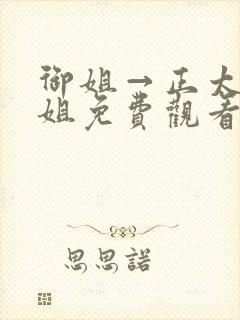 御姐→正太
姐免費觀看
思思諾